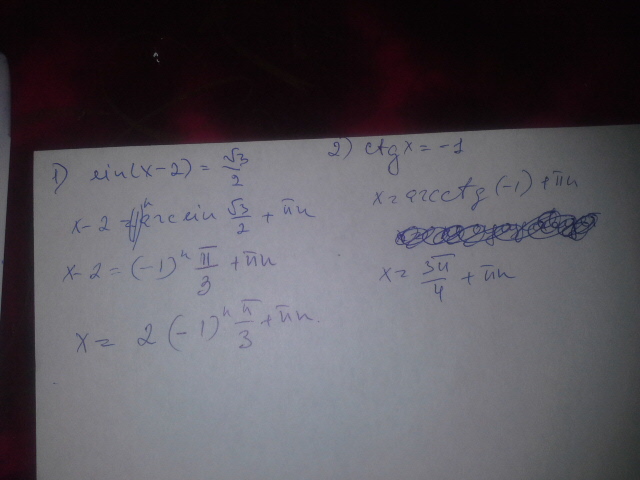 1) sin(x-2) = √3/2
x-2 = (-1)ⁿ arcsin √3/2 + πn
x-2 = (-1)ⁿ π/3 + πn
x = 2 (-1)ⁿ π/3 + πn.
2) ctg x = -1
x = arcctg (-1) + πn
x = 3π/4 + πn